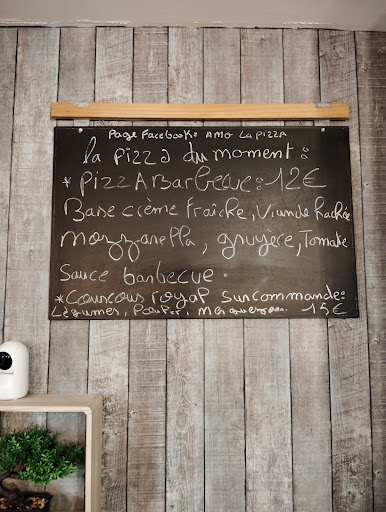 Page Facebook: AMO LA PIZZA
la pizza du moment:
* PIZZA Barbecue: 12€
Base crème fraîche, Viande hachée
Mozzarella, gruyère, Tomate
Sauce barbecue.
* Couscous royal sur commande:
Légumes, Poulet, Merguezs 15€